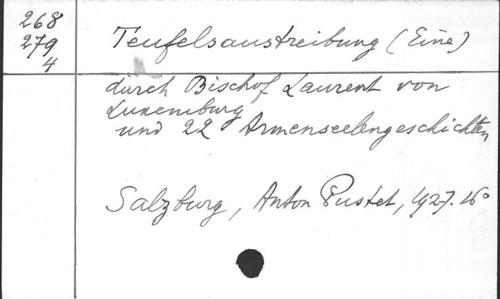 268
279
4
Teufelsaustreibung (Eine)
durch Bischof Laurent von
Luxemburg
und 22 Armenseelengeschichten
Salzburg, Anton Pustet, 1927. 16°